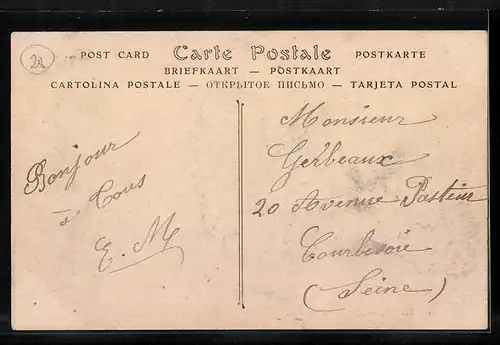 22
POST CARD Carte Postale POSTKARTE
BRIEFKAART — POSTKAART
CARTOLINA POSTALE — ОТКРЫТОЕ ПИСЬМО — TARJETA POSTAL
Bonjour
à Tous
E. M
Monsieur
Gerbeaux
20 Avenue Pasteur
Courbevoie
(Seine)